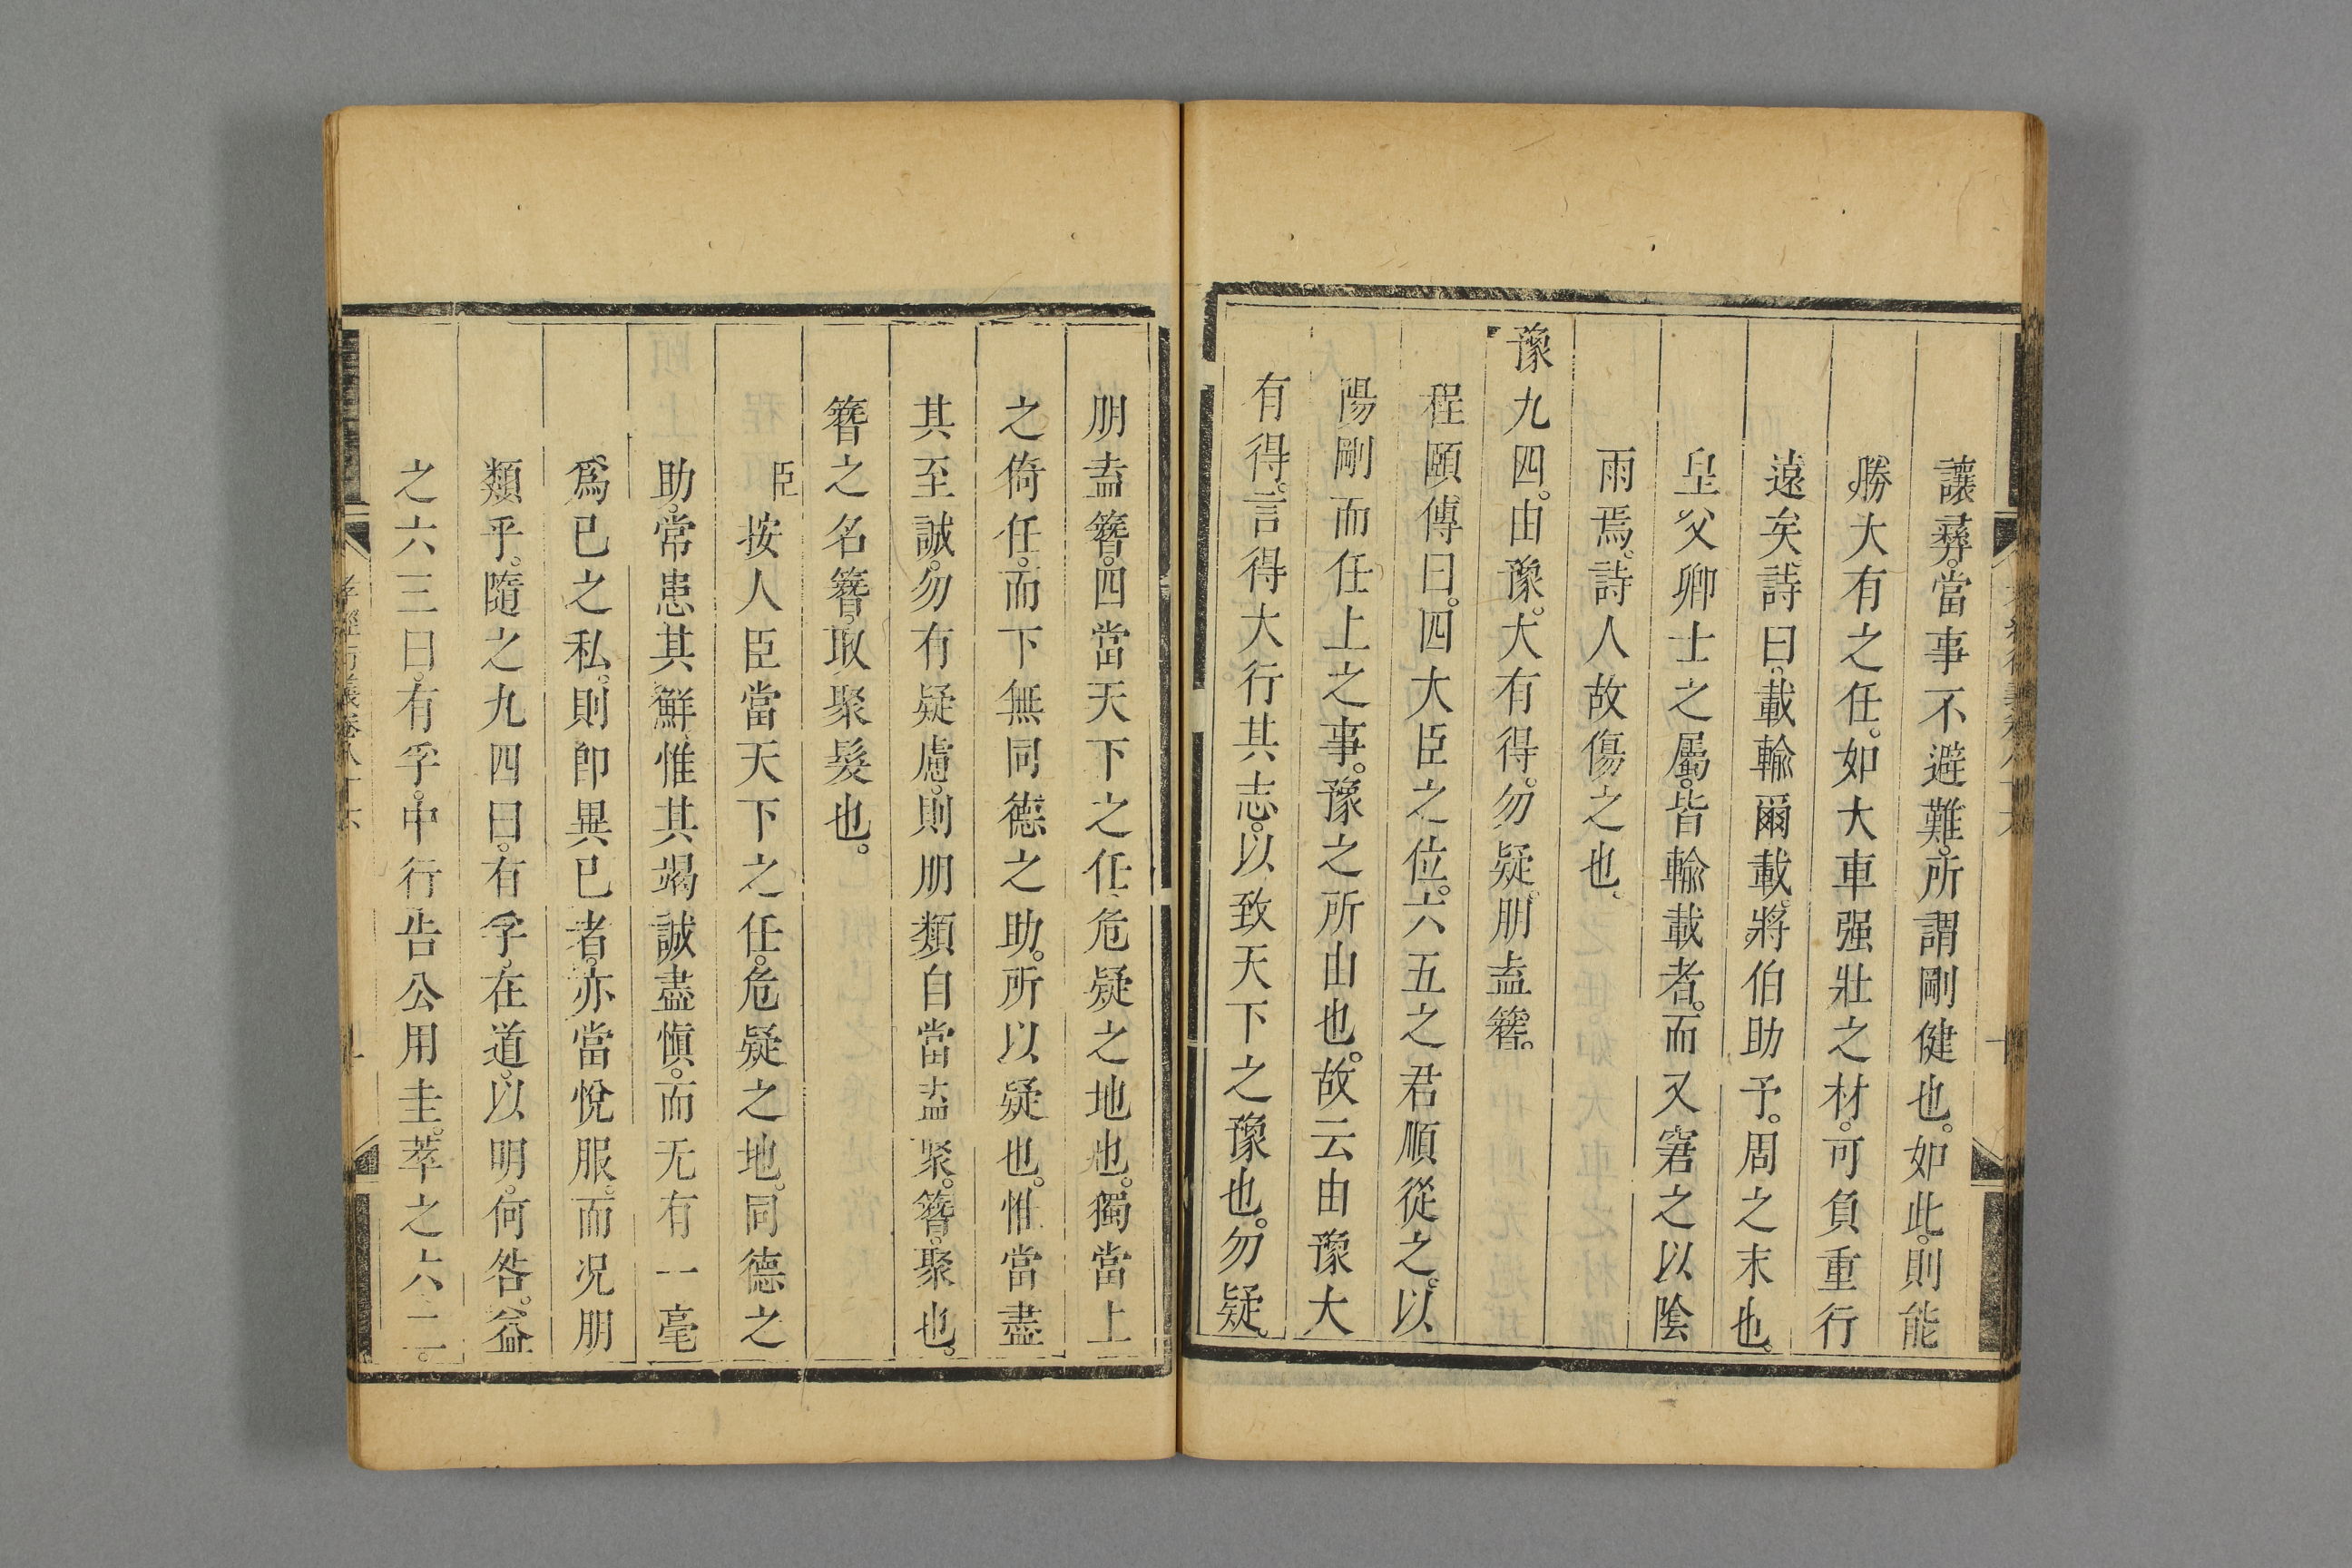 讓彝。當事不避難。所謂剛健也。如此。則能
勝大有之任。如大車强壯之材。可負重行
遠矣。詩曰。載輸爾載。將伯助予。周之末也。
皇父卿士之屬。皆輸載者。而又窘之以陰
雨焉。詩人故傷之也。
豫九四。由豫。大有得。勿疑。朋盍簪。
程頤傳曰。四大臣之位。六五之君順從之。以
陽剛而任上之事。豫之所由也。故云由豫大
有得。言得大行其志。以致天下之豫也。勿疑。
朋盍簪。四當天下之任。危疑之地也。獨當上
之倚任。而下無同德之助。所以疑也。惟當盡
其至誠。勿有疑慮。則朋類自當盍聚。簪。聚也。
簪之名簪。取聚髮也。
臣按人臣當天下之任。危疑之地。同德之
助。常患其鮮。惟其竭誠盡慎。而无有一毫
爲已之私。則卽異已者。亦當悅服。而况朋
類乎。隨之九四曰。有孚。在道。以明。何咎。益
之六三曰。有孚。中行告公用圭。萃之六二。
孝經衍義卷八十六